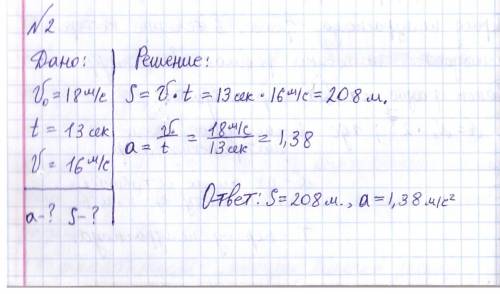 №2
Дано:
V₀ = 18 м/с
t = 13 сек
V = 16 м/с
a-? S-?
Решение:
S = V · t = 13 сек · 16 м/с = 208 м.
a = V₀/t = 18 м/с / 13 сек = 1,38
Ответ: S = 208 м., a = 1,38 м/с²